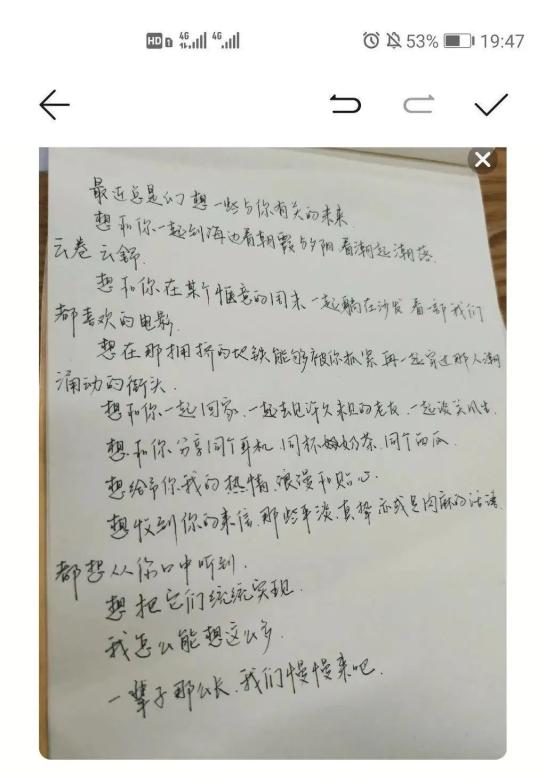 HD 4G 4G 53% 19:47
最近总是幻想一些与你有关的未来.
想和你一起到海边看朝霞与夕阳看潮起潮落.
云卷云舒.
想和你在某个惬意的周末一起躺在沙发看一部我们
都喜欢的电影.
想在那拥挤的地铁能够被你抓紧再一起穿过那人潮
涌动的街头.
想和你一起回家.一起去见许久未见的老友.一起谈天说地.
想和你分享同个耳机.同杯奶茶.同个西瓜.
想给予你我的热情.浪漫和贴心.
想收到你的来信.那些平淡.真挚亦或是肉麻的话语
都想从你口中听到.
想把它们统统实现.
我怎么能想这么多.
一辈子那么长.我们慢慢来吧.